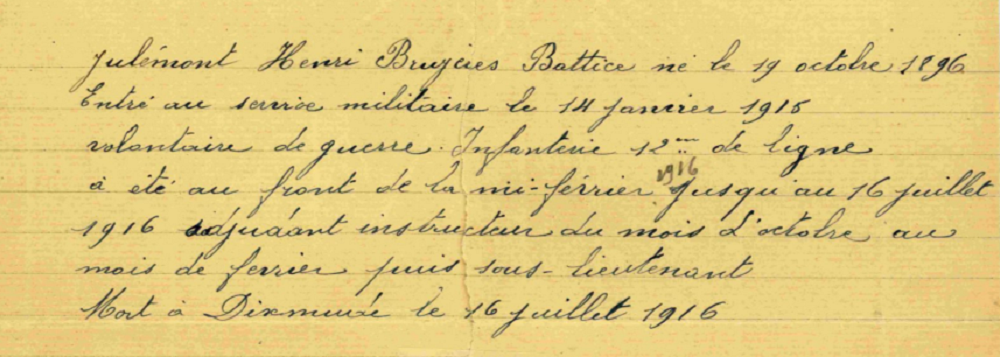 Julémont Henri Bruyères Battice né le 19 octobre 1896
Entré au service militaire le 14 janvier 1915
volontaire de guerre. Infanterie 12me de ligne
a été au front de la mi-février 1916 jusqu'au 16 juillet
1916 adjudant instructeur du mois d'octobre au
mois de fevrier puis sous-lieutenant
Mort à Dixmude le 16 juillet 1916